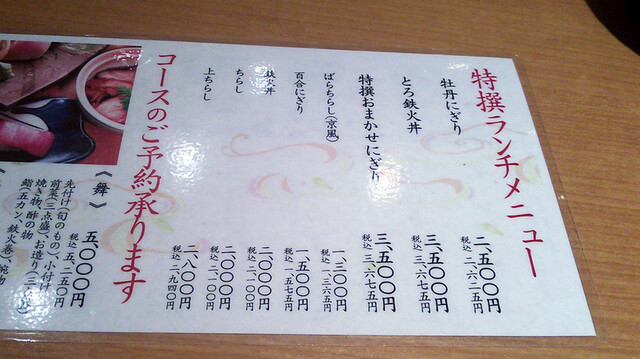 特撰ランチメニュー
牡丹にぎり 二、五〇〇円
税込 二、六二五円
とろ鉄火丼 三、五〇〇円
税込 三、六七五円
特撰おまかせにぎり 三、五〇〇円
税込 三、六七五円
ばらちらし(京風) 一、三〇〇円
税込 一、三六五円
百合にぎり 一、五〇〇円
税込 一、五七五円
鉄火丼 二、〇〇〇円
税込 二、一〇〇円
ちらし 二、〇〇〇円
税込 二、一〇〇円
上ちらし 二、八〇〇円
税込 二、九四〇円
コースのご予約承ります
《舞》 五、〇〇〇円
税込 五、二五〇円
先付け(旬のもの)、小付け
前菜(三点盛)、お造り(三
焼き物、酢の物
鮨(五カン、鉄火巻)、椀物